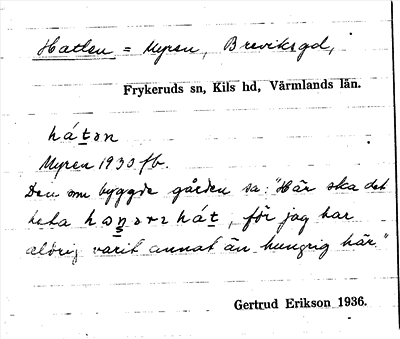 Hatten = Myren, Breviksgd,
Frykeruds sn, Kils hd, Värmlands län.
hát̲ən
Myren 1930 fb.
Den som byggde gården sa: "Här ska det
heta hát̲, för jag har
aldrig varit annat än hungrig här."
Gertrud Erikson 1936.